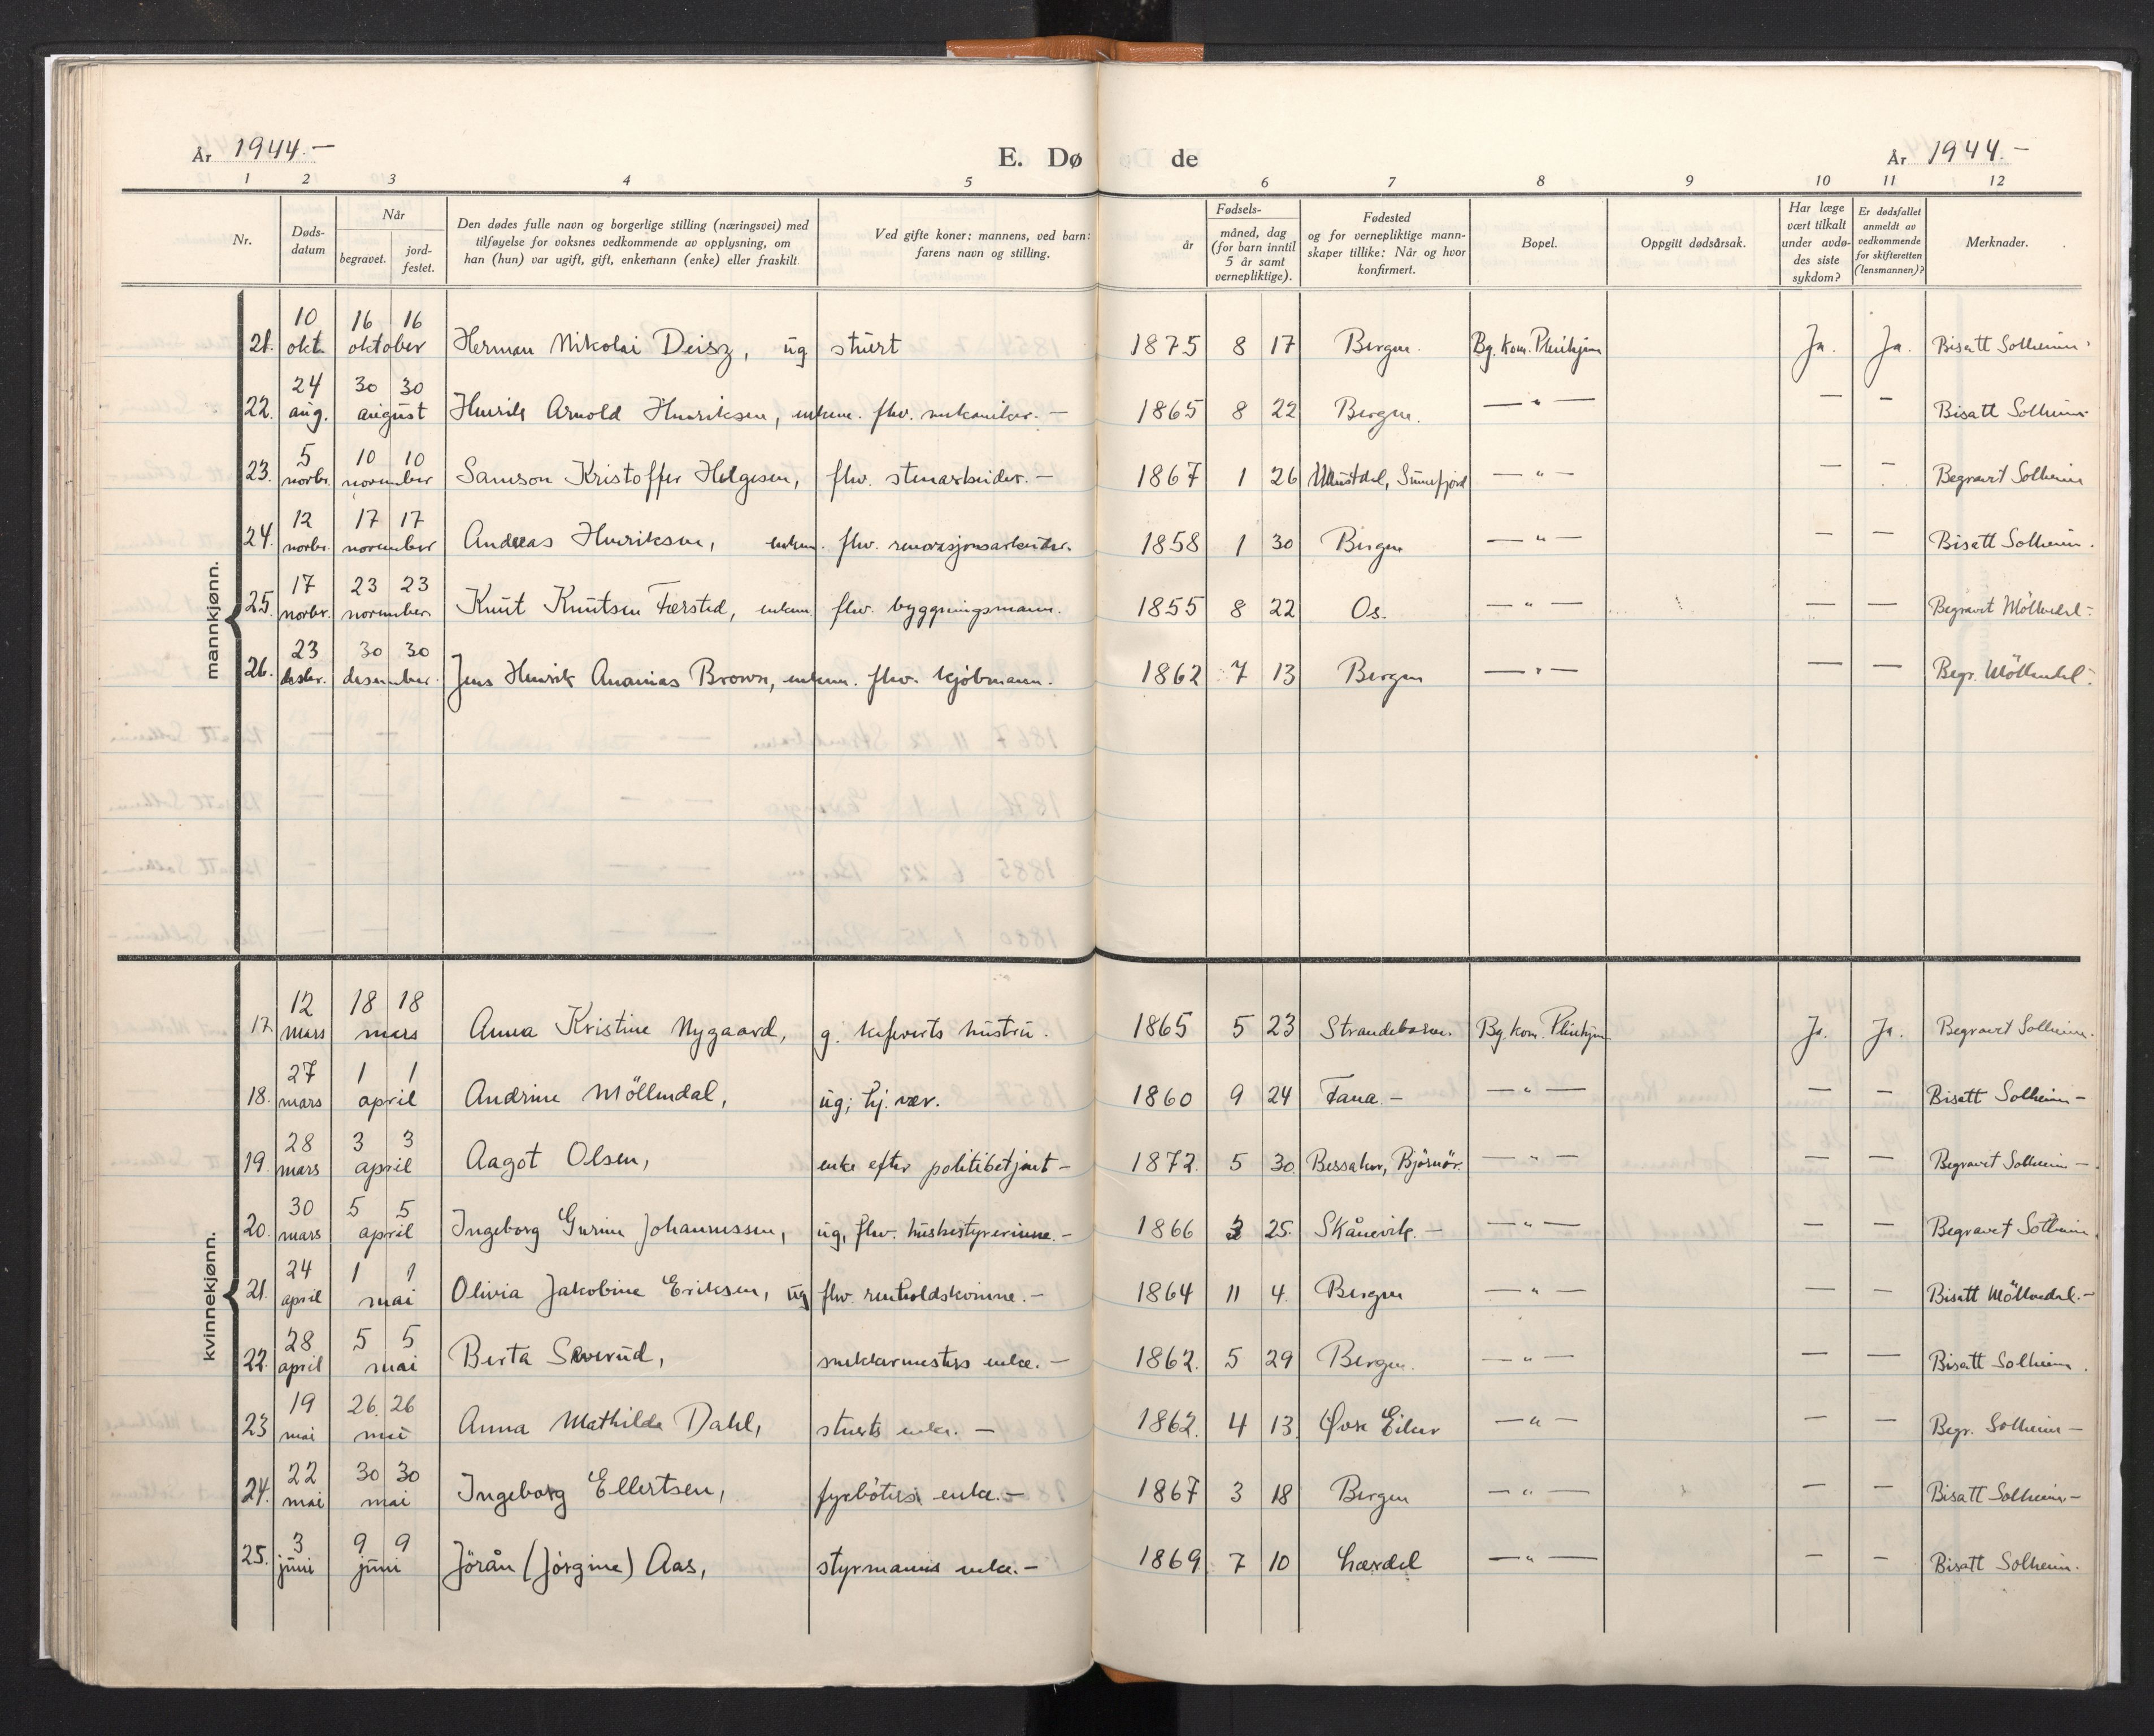 År 1944.-
E. Dø de
År 1944.-
1 2 3 4 5 6 7 8 9 10 11 12
Nr.
Døds-
datum
Når
begravet.
jord-
festet.
Den dødes fulle navn og borgerlige stilling (næringsvei) med
tilføyelse for voksnes vedkommende av opplysning, om
han (hun) var ugift, gift, enkemann (enke) eller fraskilt.
Ved gifte koner: mannens, ved barn:
farens navn og stilling.
år
Fødsels-
måned, dag
(for barn inntil
5 år samt
vernepliktige).
Fødested
og for vernepliktige mann-
skaper tillike: Når og hvor
konfirmert.
Bopel.
Oppgitt dødsårsak.
Har læge
vært tilkalt
under avdø-
des siste
sykdom?
Er dødsfallet
anmeldt av
vedkommende
for skifteretten
(lensmannen)?
Merknader.
mannkjønn.
10 16 16
21. okt. oktober Herman Nikolai Deisz, ug stuert 1875 8 17 Bergen. Bg. kom. Pleiehjem Ja. Ja. Bisatt Solheim
24 30 30
22. aug. august Henrik Arnold Henriksen, enkem. fhv. mekaniker. - 1865 8 22 Bergen. — " — — – Bisatt Solheim
5 10 10
23. novbr. november Samson Kristoffer Helgesen, fhv. stenarbeider. - 1867 1 26 Naustdal, Sunnfjord — " — — – Begravet Solheim
12 17 17
24. novbr. november Andreas Henriksen, enkem. fhv. renovasjonsarbeider. 1858 1 30 Bergen — " — — — Bisatt Solheim.
17 23 23
25. novbr. november Knut Knutsen Færstad, enkem. fhv. byggningsmann. 1855 8 22 Os. — " — — — Begravet Möllendal -
23 30 30
26. desbr. desember. Jens Henrik Ananias Brown, enkem. fhv. kjöbmann. 1862 7 13 Bergen — " — — — Begr. Möllendal.
kvinnekjønn.
12 18 18
17. mars mars Anna Kristine Nygaard, g. kafeverts hustru. 1865 5 23 Strandebarm. Bg. kom. Pleiehjem Ja. Ja. Begravet Solheim.
27 1 1
18. mars april Andrine Möllendal, ug; hj. vær. 1860 9 24 Fana. - — " — — – Bisatt Solheim -
28 3 3
19. mars april Aagot Olsen, enke efter politibetjent - 1872. 5 30 Bessaker, Björnör. — " — — — Begravet Solheim -
30 5 5
20. mars april Ingeborg Gurine Johannessen, ug, fhv. husbestyrerinne. - 1866 3 25. Skånevik. - — " — — — Begravet Solheim
24 1 1
21. april mai Olivia Jakobine Eriksen, ug fhv. renholdskvinne. - 1864 11 4. Bergen — " — — — Bisatt Möllendal. -
28 5 5
22. april mai Berta Sæverud, snekkermesters enke. - 1862. 5 29 Bergen. — " — — — Bisatt Solheim.
19 26. 26
23 mai mai Anna Mathilde Dahl, stuerts enke. - 1862. 4 13. Øvre Eiker — " — — — Begr. Solheim -
22 30 30
24. mai mai Ingeborg Ellertsen, fyrböters enke. - 1867 3 18 Bergen — " — — — Bisatt Solheim -
3 9 9
25. juni juni Jörån (Jörgine) Aas, styrmanns enke. - 1869. 7 10 Lærdal — " — — – Bisatt Solheim.